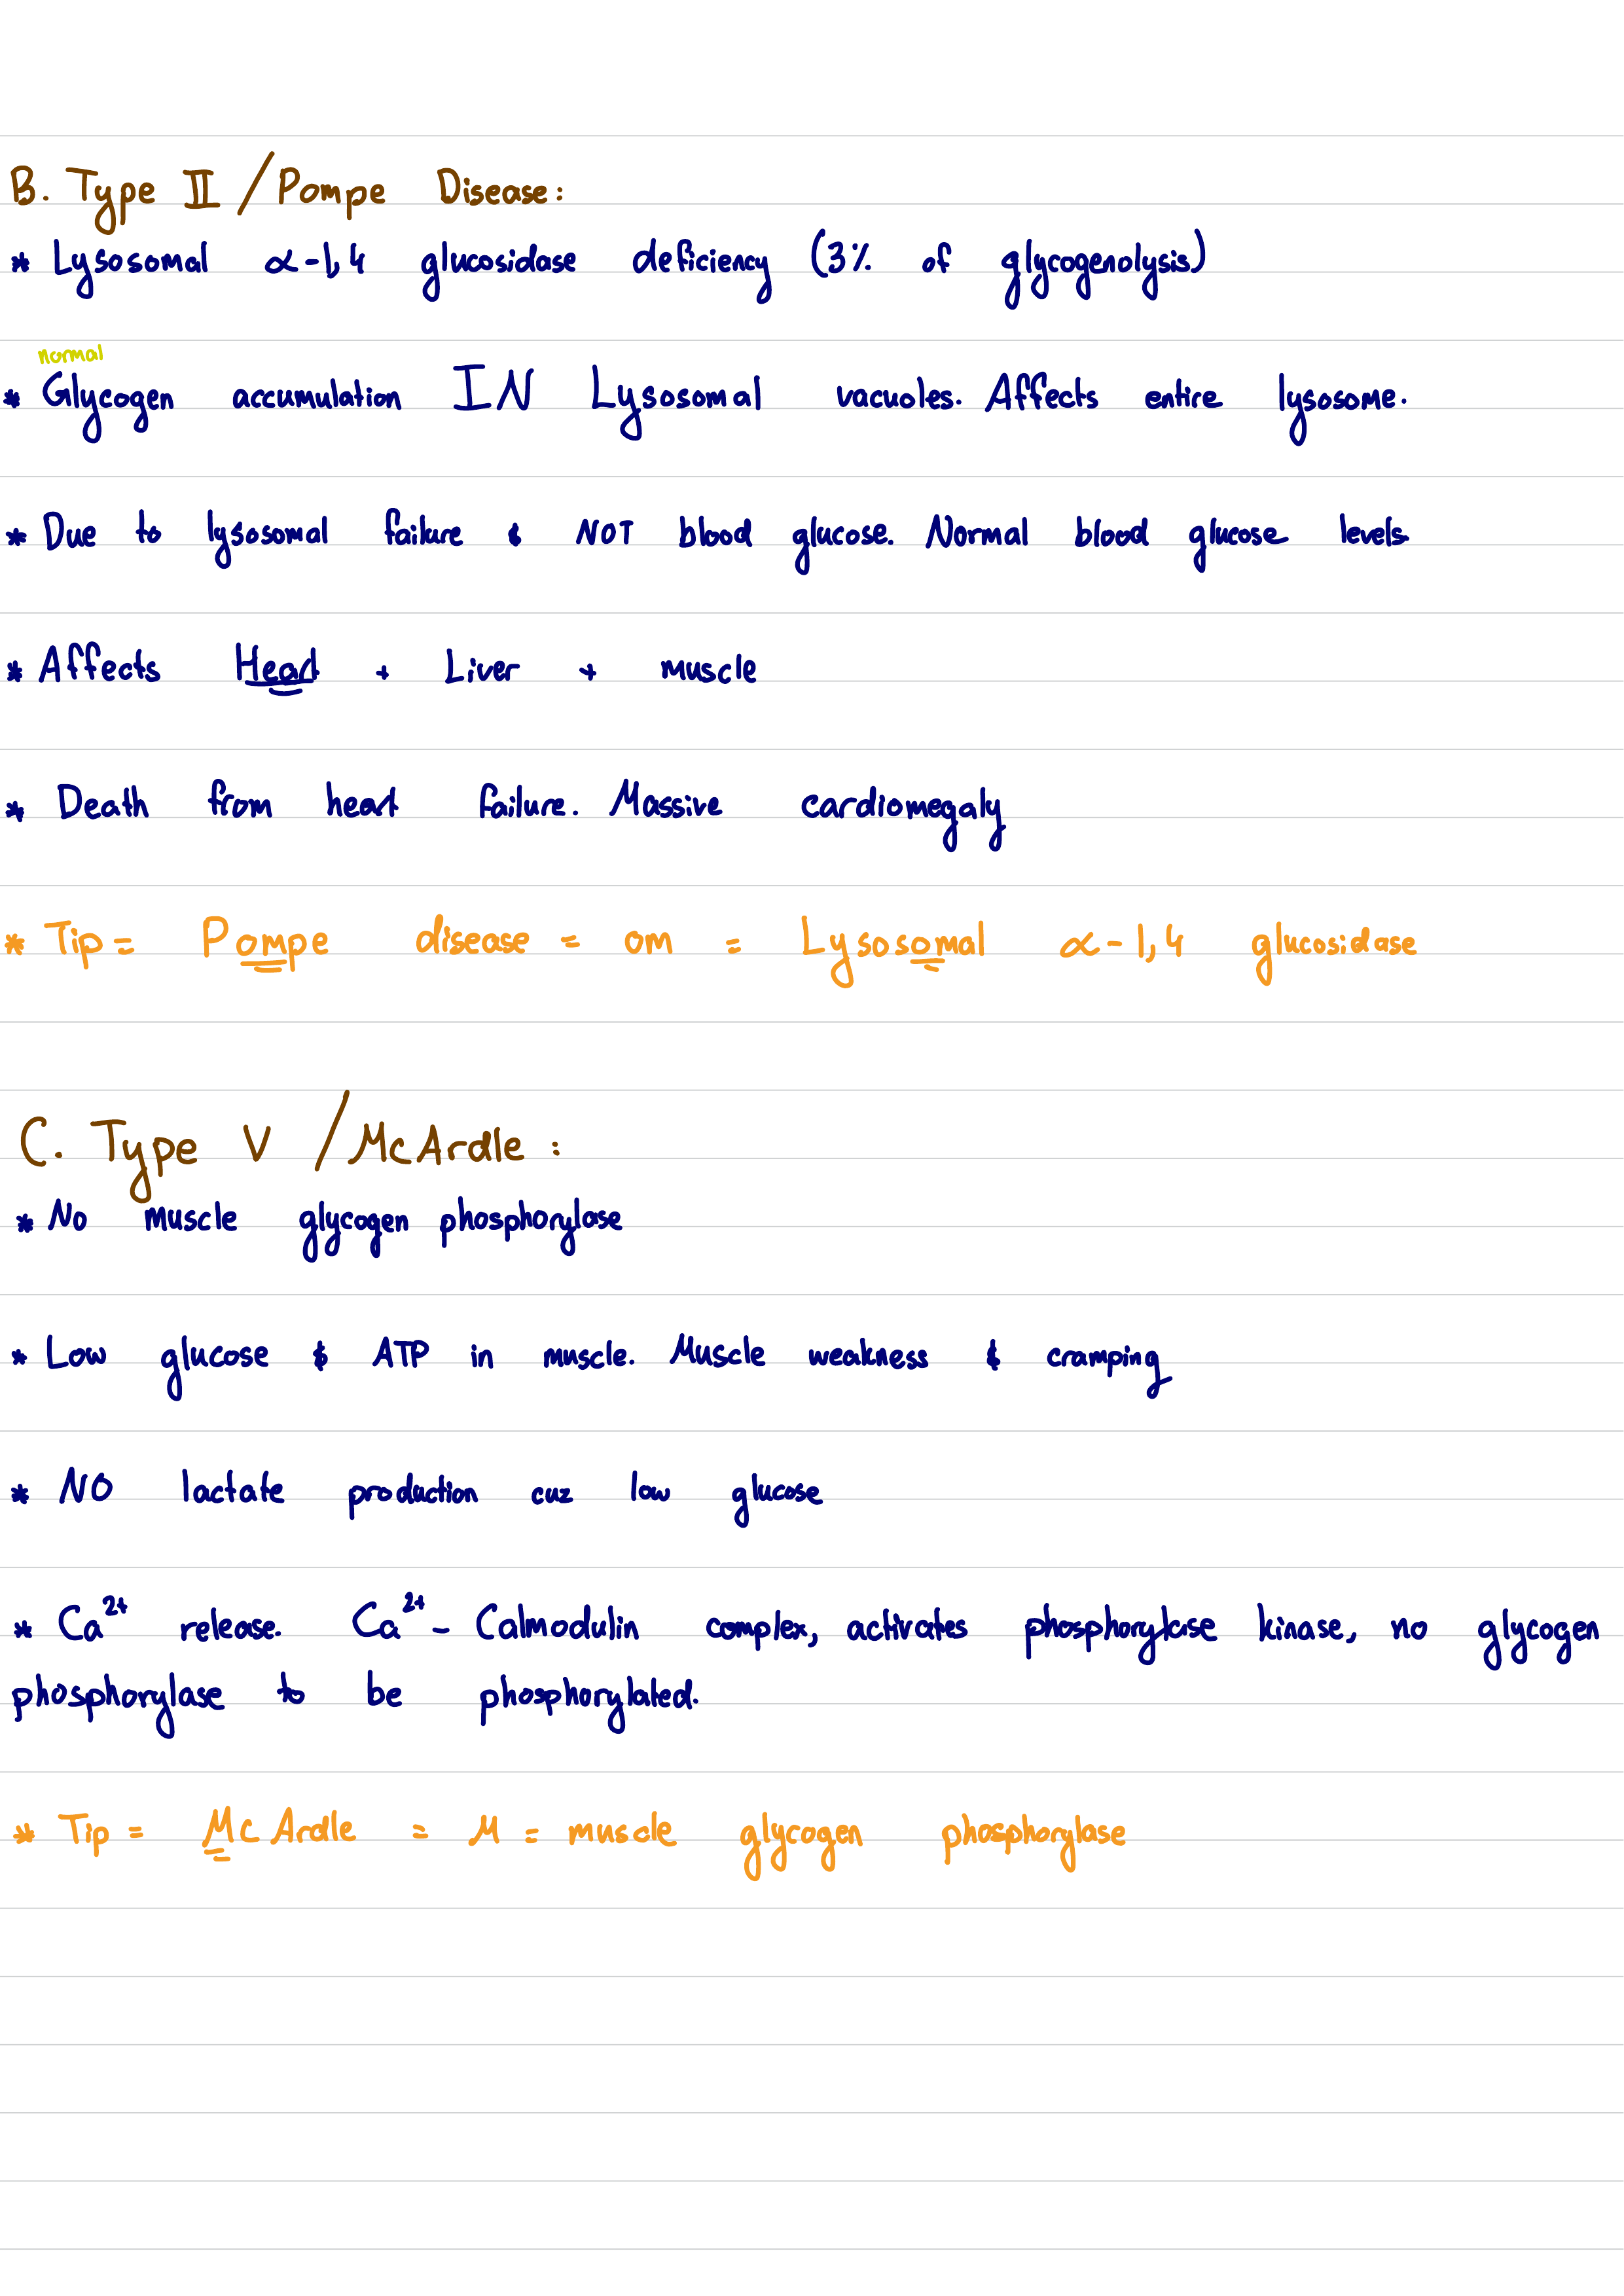 B. Type II / Pompe Disease:
* Lysosomal α-1,4 glucosidase deficiency (3% of glycogenolysis)
normal
* Glycogen accumulation IN Lysosomal vacuoles. Affects entire lysosome.
* Due to lysosomal failure & NOT blood glucose. Normal blood glucose levels.
* Affects Heart + Liver + muscle
* Death from heart failure. Massive cardiomegaly
* Tip = Pompe disease = om = Lysosomal α-1,4 glucosidase
C. Type V / McArdle :
* No muscle glycogen phosphorylase
* Low glucose & ATP in muscle. Muscle weakness & cramping
* NO lactate production cuz low glucose
* Ca²⁺ release. Ca²⁺ - Calmodulin complex, activates phosphorylase kinase, no glycogen
phosphorylase to be phosphorylated.
* Tip = McArdle = M = muscle glycogen phosphorylase